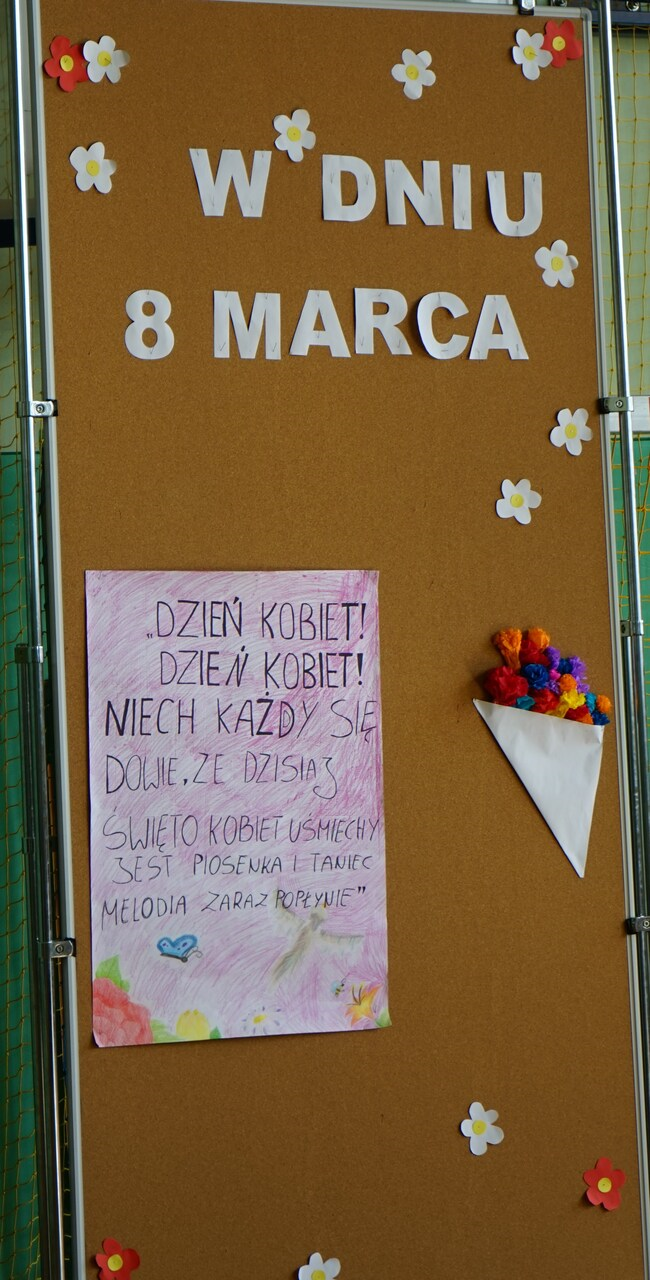 W DNIU
8 MARCA
„DZIEŃ KOBIET!
DZIEŃ KOBIET!
NIECH KAŻDY SIĘ
DOWIE, ZE DZISIAJ
ŚWIĘTO KOBIET UŚMIECHY
JEST PIOSENKA I TANIEC
MELODIA ZARAZ POPŁYNIE"